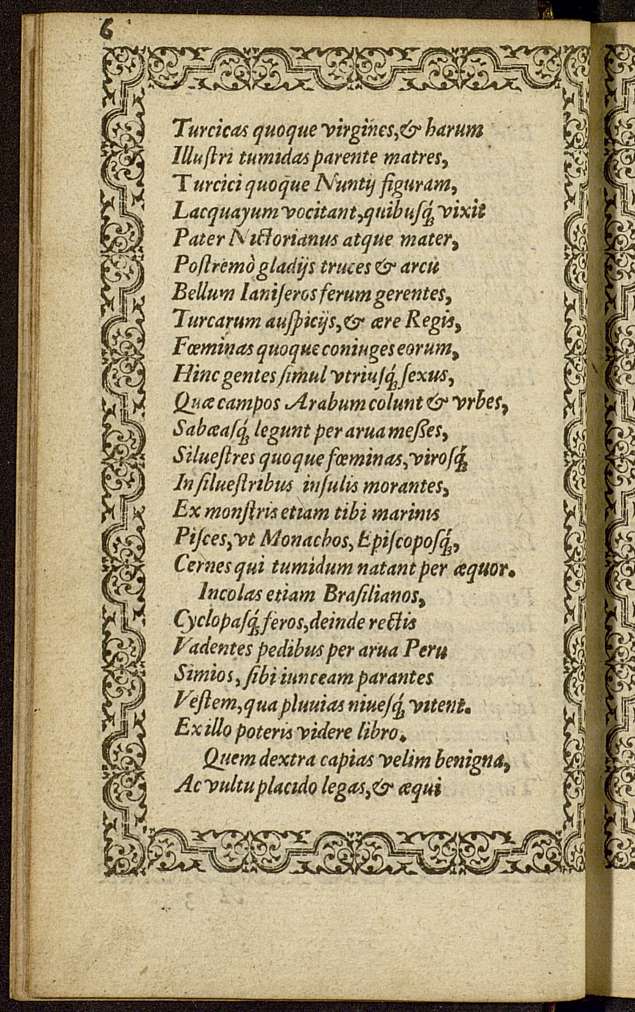 6
Turcicas quoque virgines, & harum
Illuſtri tumidas parente matres,
Turcici quoque Nuntij figuram,
Lacquayum vocitant, quibuſq́; vixit
Pater Nictorianus atque mater,
Poſtremò gladijs truces & arcu
Bellum Ianiſeros ferum gerentes,
Turcarum auſpicijs, & ære Regis,
Fœminas quoque coniuges eorum,
Hinc gentes ſimul vtriuſq́; ſexus,
Quæ campos Arabum colunt & vrbes,
Sabæaſq́; legunt per arua meßes,
Silueſtres quoque fœminas, viroſq́;
In ſilueſtribus inſulis morantes,
Ex monſtris etiam tibi marinis
Piſces, vt Monachos, Epiſcopoſq́;,
Cernes qui tumidum natant per æquor.
Incolas etiam Braſilianos,
Cyclopaſq́; feros, deinde rectis
Vadentes pedibus per arua Peru
Simios, ſibi iunceam parantes
Veſtem, qua pluuias niueſq́; vitent.
Ex illo poteris videre libro.
Quem dextra capias velim benigna,
Ac vultu placido legas, & æqui